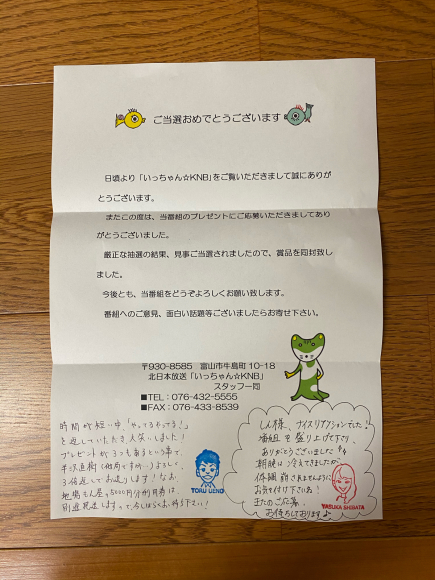 ご当選おめでとうございます
日頃より「いっちゃん☆KNB」をご覧いただきまして誠にありが
とうございます。
またこの度は、当番組のプレゼントにご応募いただきましてあり
がとうございました。
厳正な抽選の結果、見事ご当選されましたので、賞品を同封致し
ました。
今後とも、当番組をどうぞよろしくお願い致します。
番組へのご意見、面白い話題等ございましたらお寄せ下さい。
〒930-8585 富山市牛島町10-18
北日本放送「いっちゃん☆KNB」
スタッフ一同
■TEL:076-432-5555
■FAX:076-433-8539
時間が短い中「やってるやってる!」
を返していただき、大笑いしました!
プレゼントが3つも有るという事で、
半沢直樹
3倍返しでお返しします!なお、
5000円分利用券は、
別途発送しますので、今しばらくお待ち下さい!
TORU UENO
しん様、ナイスリアクションでした!
番組を盛り上げて下さり、
ありがとうございました
朝晩は冷えてきましたが、
体調崩されませんように
お気を付け下さいね!
またのご応募、
お待ちしております♪
YASUKA SHIBATA